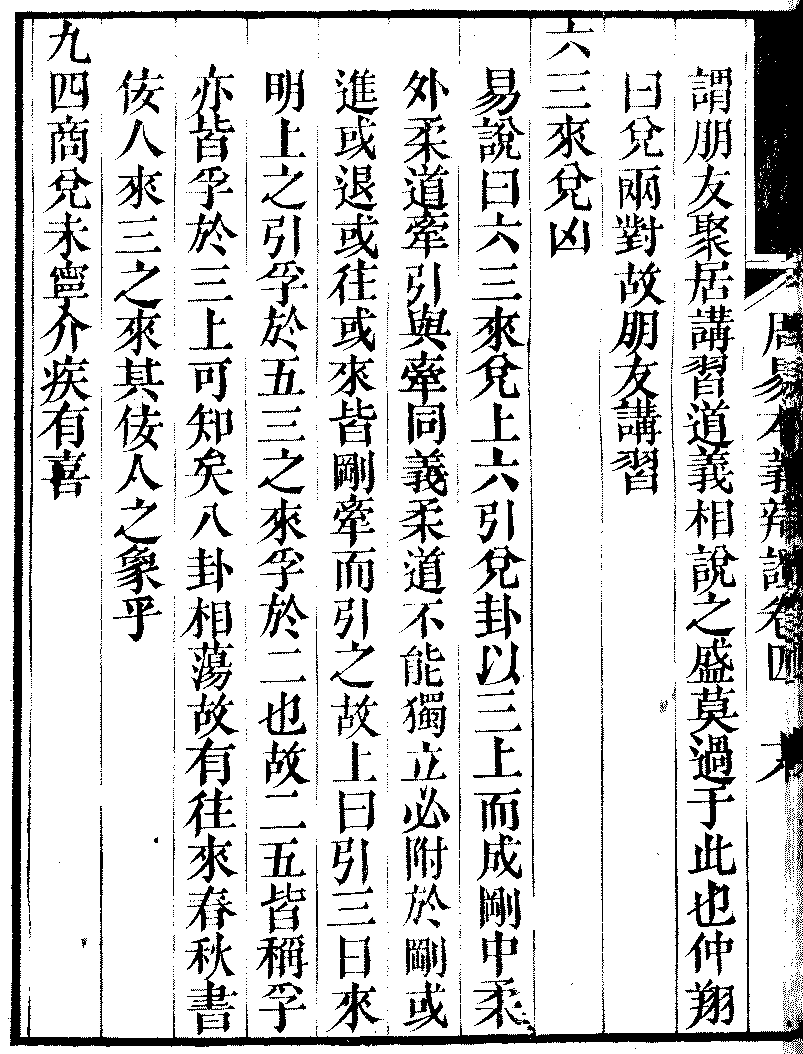 周易本義辨證卷四
謂朋友聚居講習道義相說之盛莫過于此也仲翔
曰兌兩對故朋友講習
六三來兌凶
易說曰六三來兌上六引兌卦以三上而成剛中柔
外柔道牽引與牽同義柔道不能獨立必附於剛或
進或退或往或來皆剛牽而引之故上曰引三曰來
明上之引孚於五三之來孚於二也故二五皆稱孚
亦皆孚於三上可知矣八卦相蕩故有往來春秋書
佞人來三之來其佞人之象乎
九四商兌未寧介疾有喜